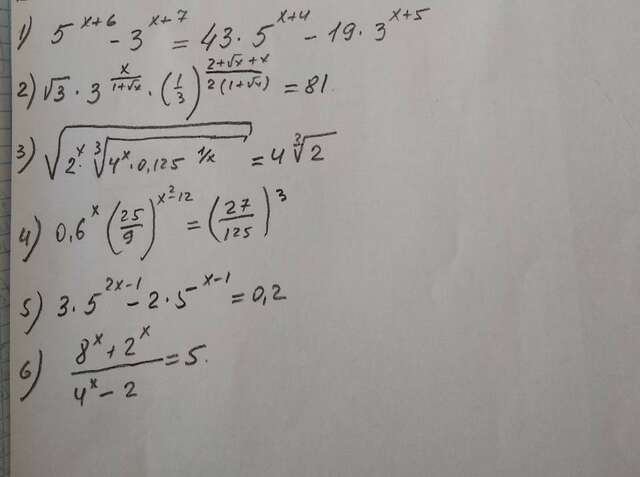 1) 5^(x+6) - 3^(x+7) = 43 · 5^(x+4) - 19 · 3^(x+5)
2) √3 · 3^(x/(1+√x)) · (1/3)^((2+√x+x)/(2(1+√x))) = 81
3) √(2^x · ∛(4^x · 0,125^(1/x))) = 4∛2
4) 0,6^x (25/9)^(x²-12) = (27/125)³
5) 3 · 5^(2x-1) - 2 · 5^(x-1) = 0,2
6) (8^x + 2^x)/(4^x - 2) = 5.